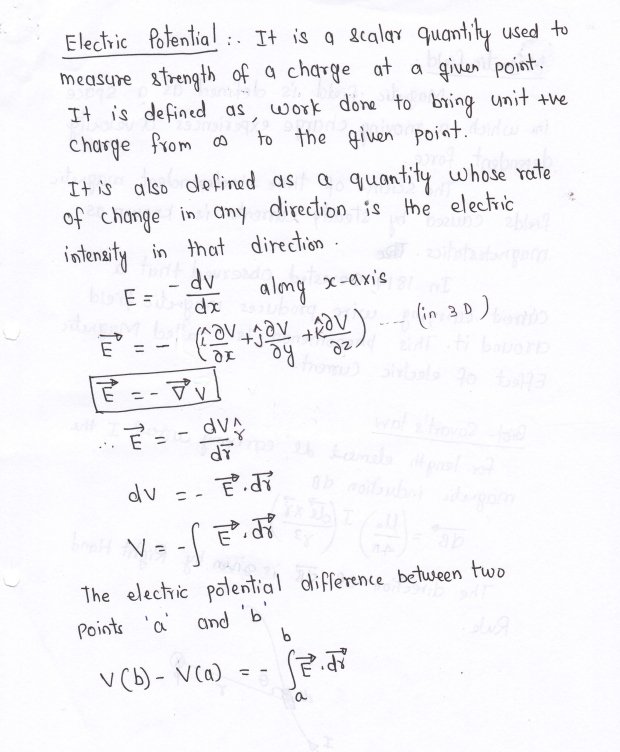 Electric Potential :. It is a scalar quantity used to
measure strength of a charge at a given point.
It is defined as, work done to bring unit +ve
charge from ∞ to the given point.
It is also defined as a quantity whose rate
of change in any direction is the electric
intensity in that direction.
E = - dV/dx along x-axis
E⃗ = - (î ∂V/∂x + ĵ ∂V/∂y + k̂ ∂V/∂z) .... (in 3D)
E⃗ = - ∇⃗ V
∴ E⃗ = - dV/dr⃗ r̂
dv = - E⃗ . dr⃗
V = - ∫ E⃗ . dr⃗
The electric potential difference between two
points 'a' and 'b'
V(b) - V(a) = - ∫ₐᵇ E⃗ . dr⃗